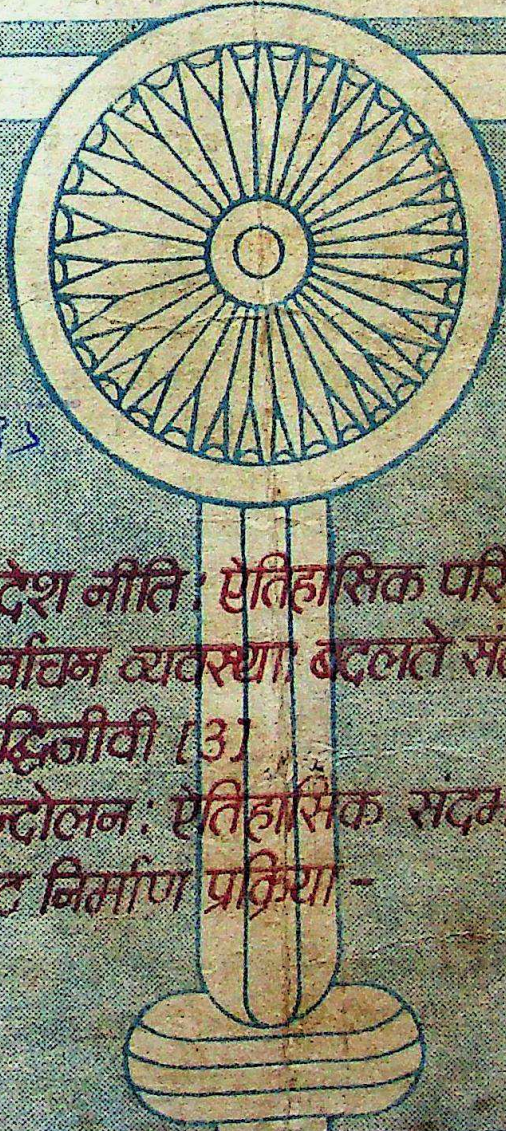 देश नीति : ऐतिहासिक परि
र्वाचन व्यवस्था: बदलते सं
द्धिजीवी (३)
न्दोलन: ऐतिहासिक संदर्भ
ट निर्माण प्रक्रिया -